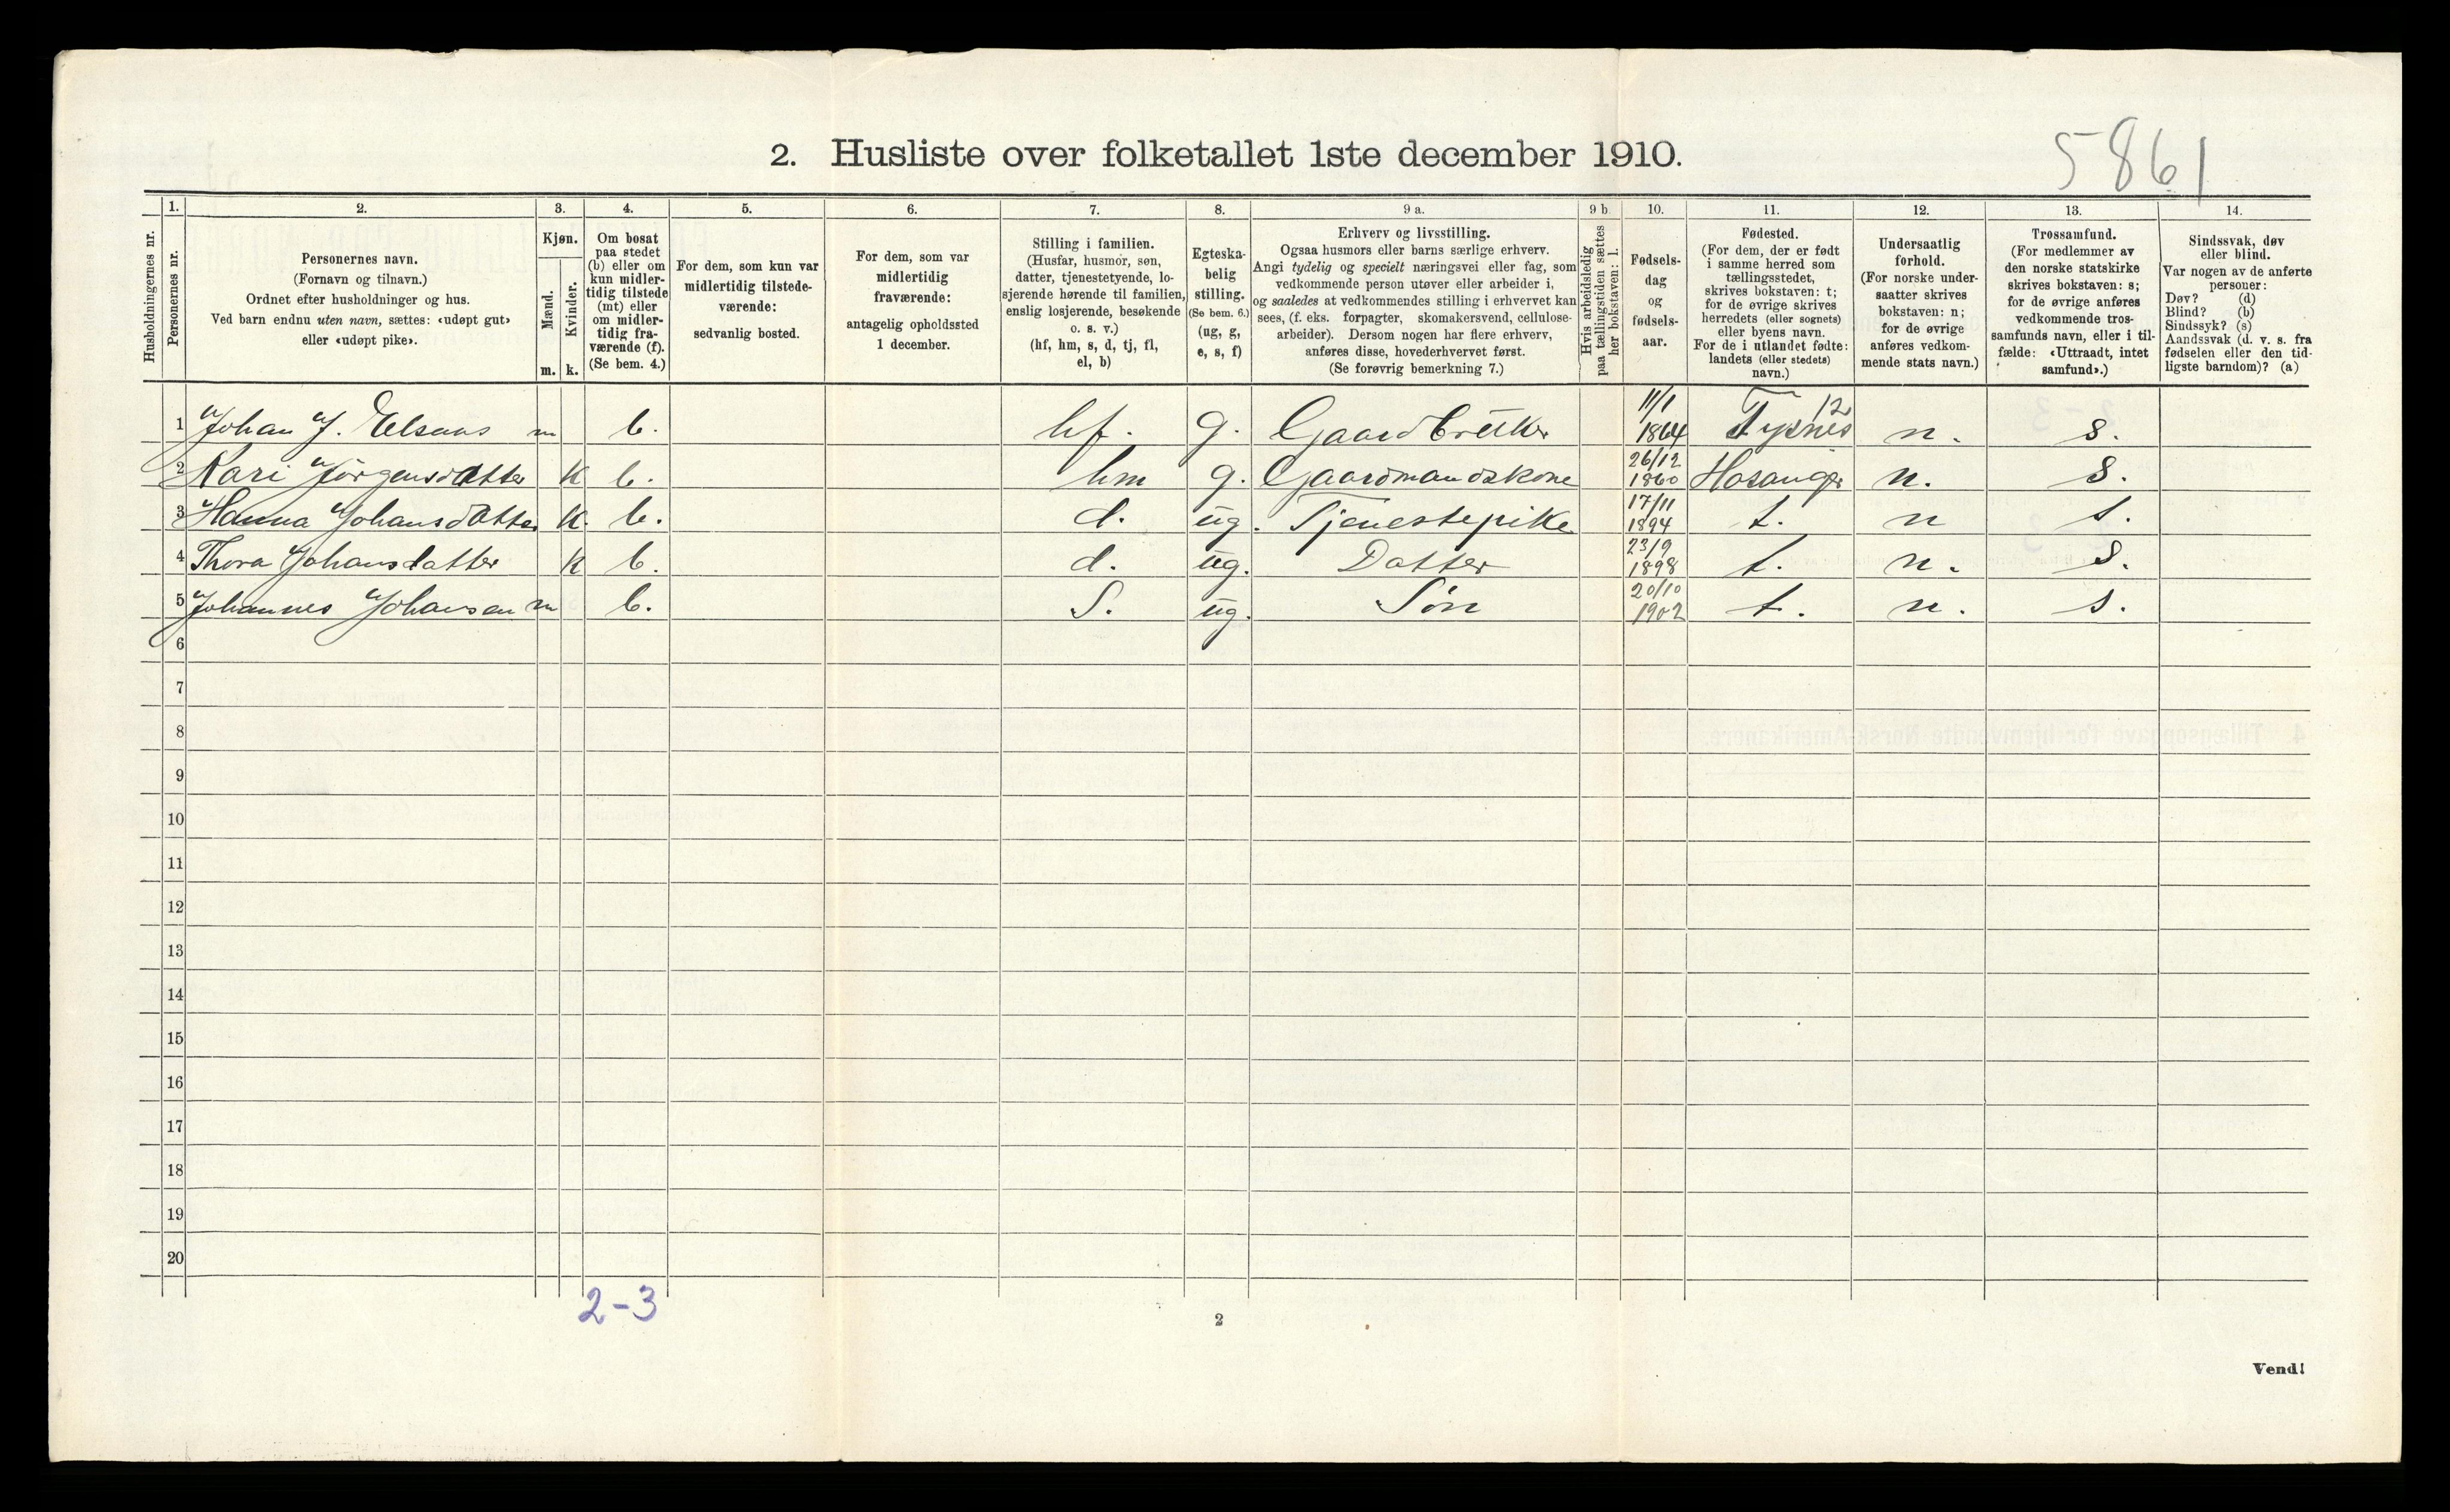 2. Husliste over folketallet 1ste december 1910.
5861
Husholdningernes nr.
1.
Personernes nr.
2.
Personernes navn.
(Fornavn og tilnavn.)
Ordnet efter husholdninger og hus.
Ved barn endnu uten navn, sættes: «udøpt gut»
eller «udøpt pike».
3.
Kjøn.
Mænd.
Kvinder.
m. k.
4.
Om bosat
paa stedet
(b) eller om
kun midler-
tidig tilstede
(mt) eller
om midler-
tidig fra-
værende (f).
(Se bem. 4.)
5.
For dem, som kun var
midlertidig tilstede-
værende:
sedvanlig bosted.
6.
For dem, som var
midlertidig
fraværende:
antagelig opholdssted
1 december.
7.
Stilling i familien.
(Husfar, husmor, søn,
datter, tjenestetyende, lo-
sjerende hørende til familien,
enslig losjerende, besøkende
o. s. v.)
(hf, hm, s, d, tj, fl,
el, b)
8.
Egteska-
belig
stilling.
(Se bem. 6.)
(ug, g,
e, s, f)
9 a.
Erhverv og livsstilling.
Ogsaa husmors eller barns særlige erhverv.
Angi tydelig og specielt næringsvei eller fag, som
vedkommende person utøver eller arbeider i,
og saaledes at vedkommendes stilling i erhvervet kan
sees, (f. eks. forpagter, skomakersvend, cellulose-
arbeider). Dersom nogen har flere erhverv,
anføres disse, hovederhvervet først.
(Se forøvrig bemerkning 7.)
9 b
Hvis arbeidsledig
paa tællingstiden sættes
her bokstaven: l.
10.
Fødsels-
dag
og
fødsels-
aar.
11.
Fødested.
(For dem, der er født
i samme herred som
tællingsstedet,
skrives bokstaven: t;
for de øvrige skrives
herredets (eller sognets)
eller byens navn.
For de i utlandet fødte:
landets (eller stedets)
navn.)
12.
Undersaatlig
forhold.
(For norske under-
saatter skrives
bokstaven: n;
for de øvrige
anføres vedkom-
mende stats navn.)
13.
Trossamfund.
(For medlemmer av
den norske statskirke
skrives bokstaven: s;
for de øvrige anføres
vedkommende tros-
samfunds navn, eller i til-
fælde: «Uttraadt, intet
samfund».)
14.
Sindssvak, døv
eller blind.
Var nogen av de anførte
personer:
Døv? (d)
Blind? (b)
Sindssyk? (s)
Aandssvak (d. v. s. fra
fødselen eller den tid-
ligste barndom)? (a)
1 Johan J. m b. hf. g. Gaardbruker 11/1 1864 Tysnes 12 n. s.
2 Kari Jørgensdatter k b. hm g. Gaardmandskone 26/12 1860 Hosanger n. s.
3 Hanna Johansdatter k. b. d. ug. Tjenestepike 17/11 1894 t. n s.
4 Thora Johansdatter k b. d. ug. Datter 23/9 1898 t. n. s.
5 Johannes Johansen m b. S. ug. Søn 20/10 1902 t. n. s.
6
7
8
9
10
11
12
13
14
15
16
17
18
19
20
2-3
2
Vend!